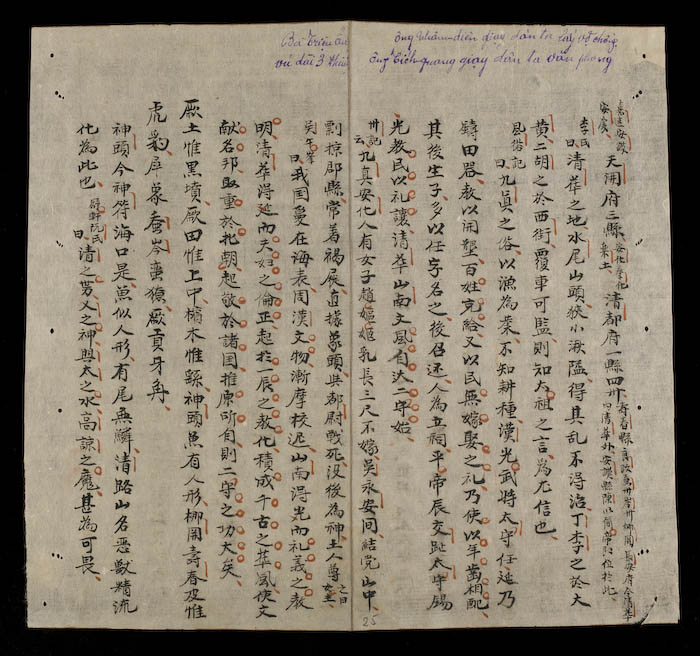 Bà Triệu Ẩu
vú dài 3 thước
Ông Nhâm-diên giạy dân ta lấy vợ chồng
Ông Tích quang giạy dân ta văn phong
天關府三縣 安化奉化 清都府一縣四州
李氏曰清華之地水尾山頭狹小湫隘得其乱不得治丁李之於大
黄二胡之於西街覆車可監則知太祖之言為尤信也
風俗記曰九真之俗以漁為業不知耕種漢光武時太守任延乃
鑄田器教以開墾百姓充給又以民無嫁娶之礼乃使以年齒相配
其後生子多以任字名之後召还人為立祠平帝辰交趾太守錫
光教民以礼讓清華山南文風自二守始
州記云九真安化人有女子趙嫗嫗乳長三尺不嫁吳永安间結党山中
剽掠郡縣常着屐直據象頭與都尉戰死没後為神土人尊之曰女主
曰我国夐在海表周漢文物漸摩校迟山南淂光而礼義之教
明清華淂延而夫妇之倫正起於一辰之教化積成千古之華風使文
献名邦取重於北朝起敬於諸国推原所自則二守之功大矣
厥土惟黑墳厥田惟上中木惟繇神頭魚有人形棚閣壽春及惟
虎豹犀象蚕岑蛮獠厥貢牙角
神頭今神符海口是魚似人形有尾無鱗清路山名恶獸精流
化為此也 阮氏曰清之勇父之神與太之水高諒之魔甚為可畏
25